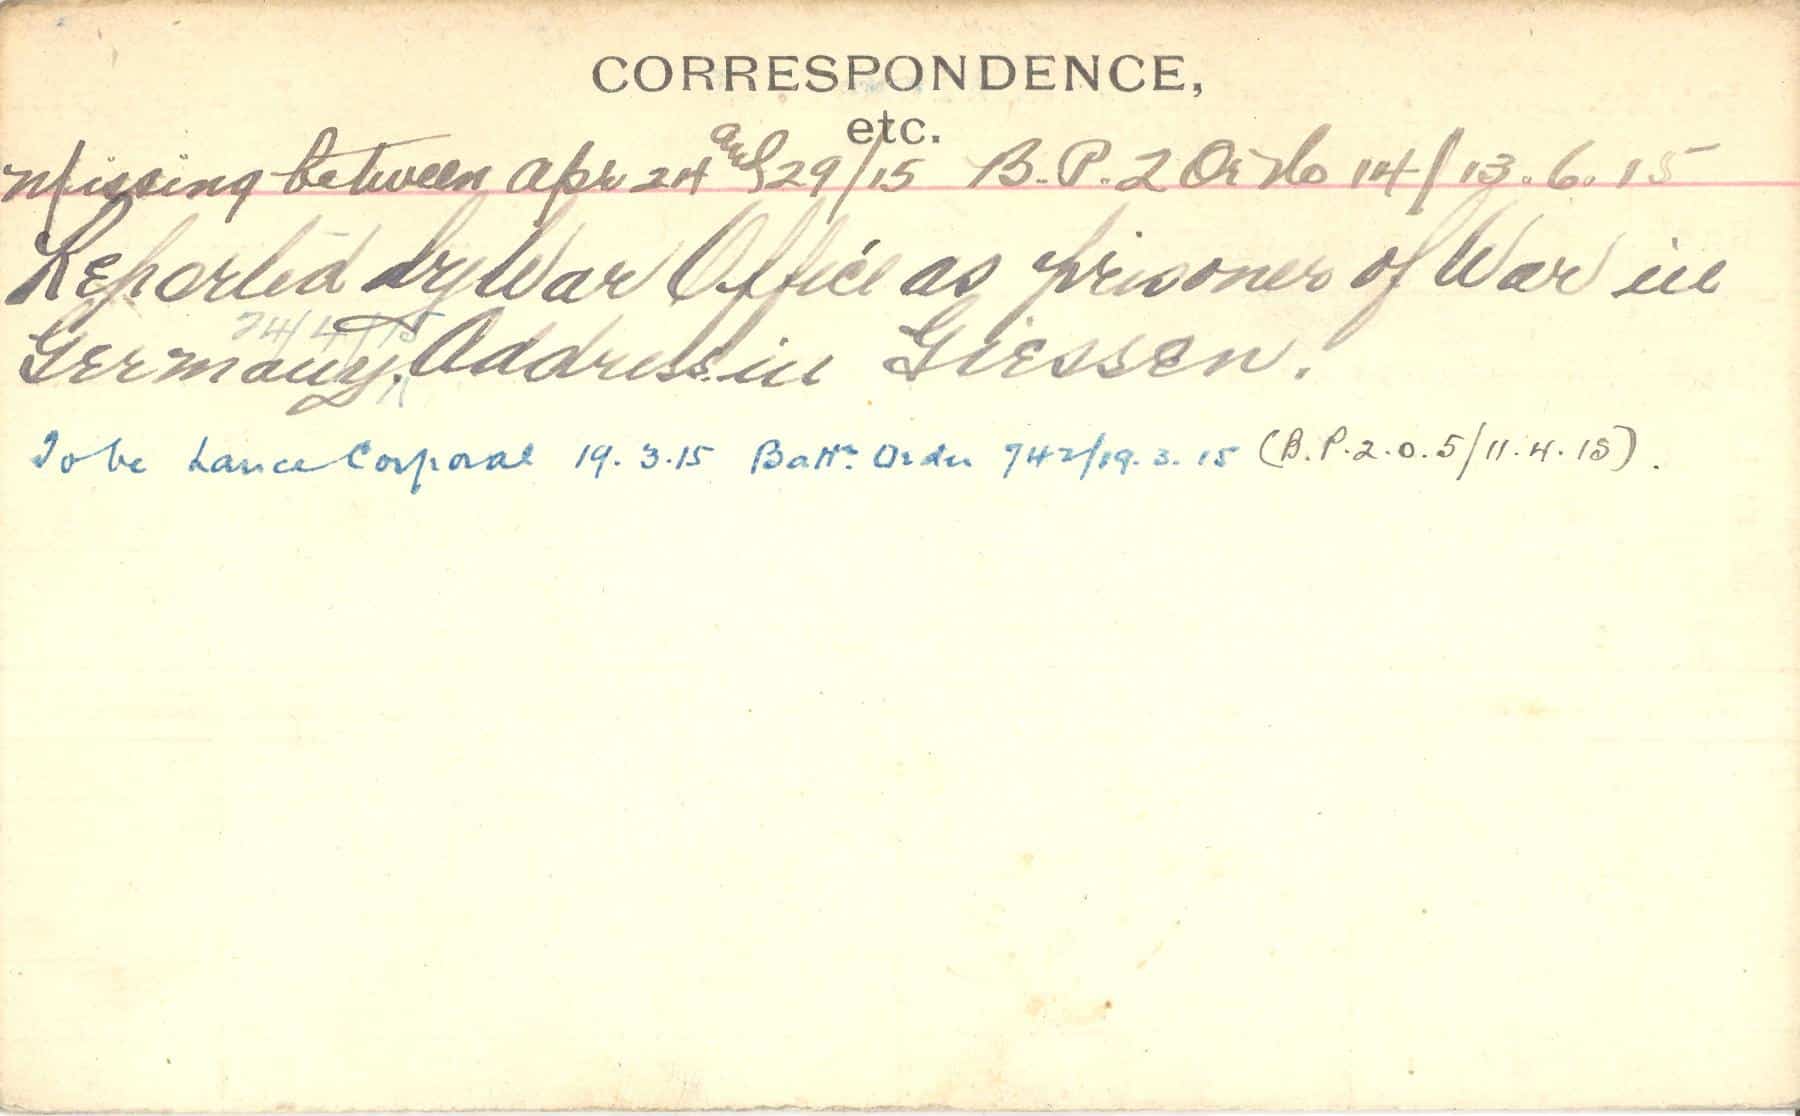 CORRESPONDENCE,
etc.
Missing between Apr 24 and 29/15 B.P. 2 Or No 14/13.6.15
Reported by War Office as prisoner of War in
24/4/15
Germany. Address in Giessen.
To be Lance Corporal 19.3.15 Battn. Order 742/19.3.15 (B.P.2.0.5/11.4.15).